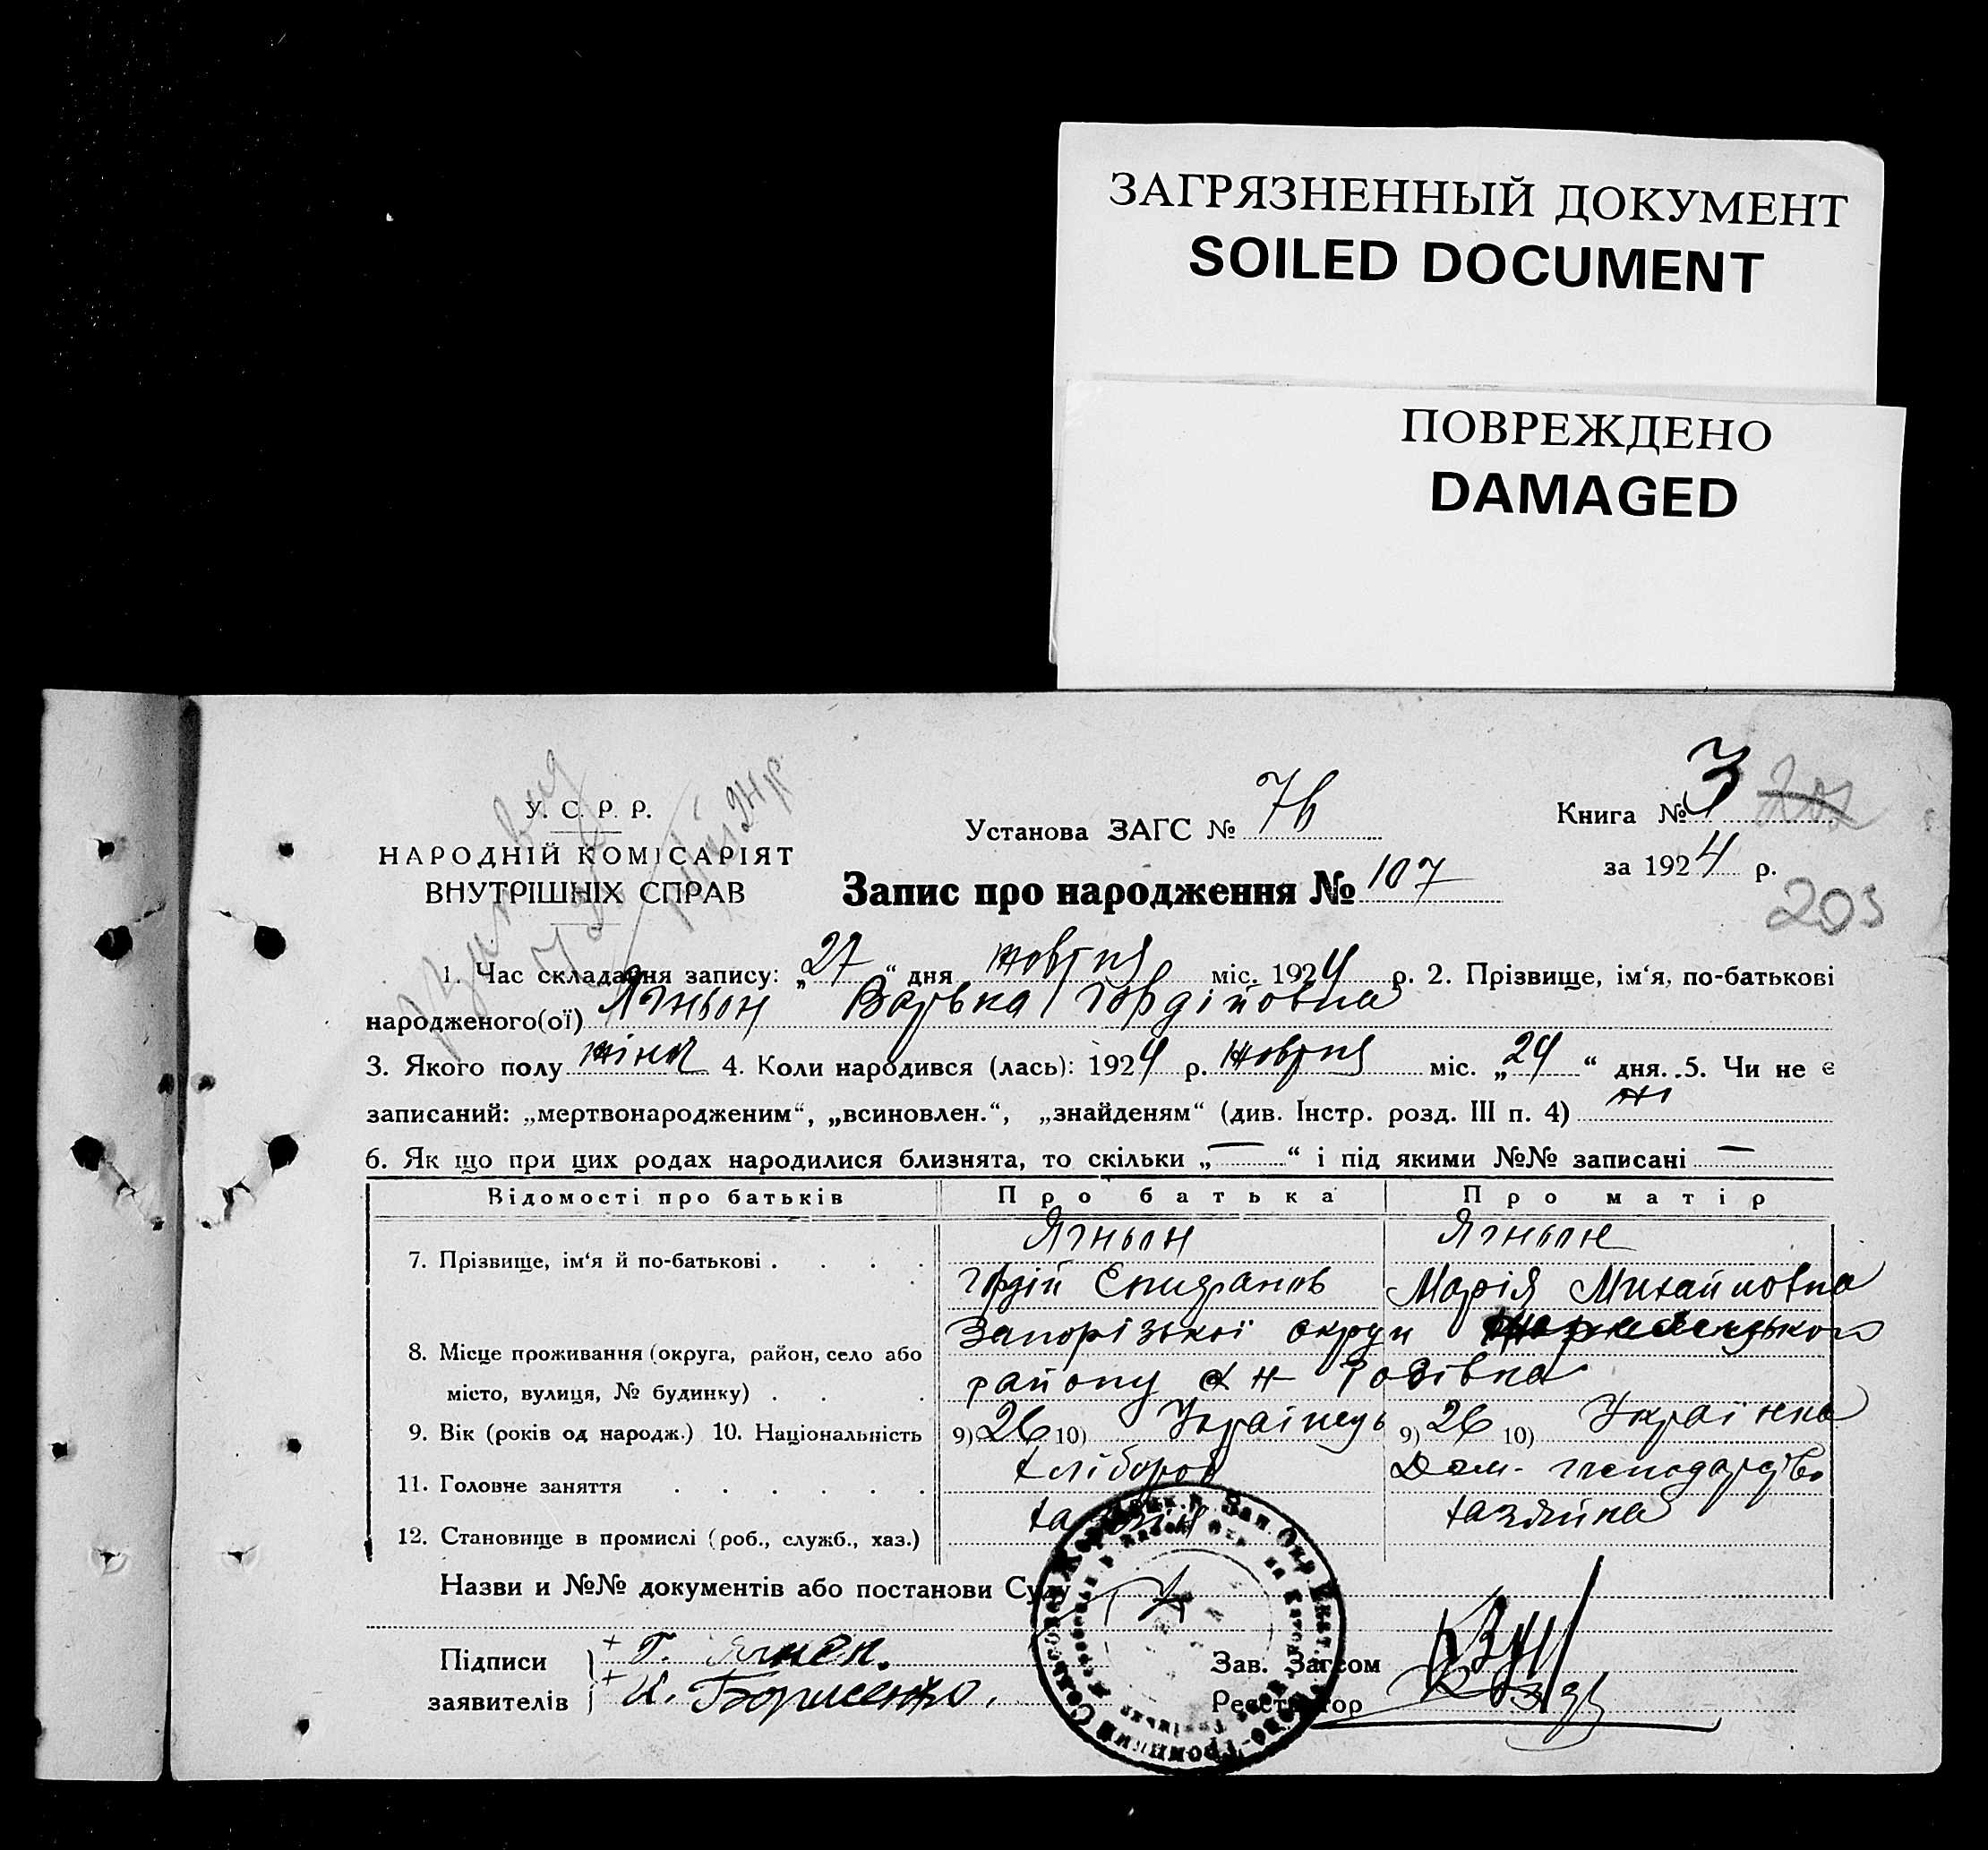 ЗАГРЯЗНЕННЫЙ ДОКУМЕНТ
SOILED DOCUMENT
ПОВРЕЖДЕНО
DAMAGED
У. С. Р. Р.
НАРОДНІЙ КОМІСАРІЯТ
ВНУТРІШНІХ СПРАВ
Установа ЗАГС № 76
Книга № 3
за 1924 р.
203
Запис про народження № 107
1. Час складання запису: „27“ дня жовтня міс. 1924 р. 2. Прізвище, ім‘я, по-батькові
народженого(ої) Ягньон Варька Гордійовна
3. Якого полу жіноч 4. Коли народився (лась): 1924 р. жовтня міс. „24“ дня. 5. Чи не є
записаний: „мертвонародженим“, „всиновлен.“, „знайденям“ (див. Інстр. розд. III п. 4) ні
6. Як що при цих родах народилися близнята, то скільки „—“ і під якими №№ записані —
Відомості про батьків Про батька Про матір
7. Прізвище, ім‘я й по-батькові Ягньон Ягньон
Гордій Єпифанов Марія Михайловна
8. Місце проживання (округа, район, село або Запорізької округи
місто, вулиця, № будинку) району
9. Вік (років од народж.) 10. Національність 9) 26 10) Українець 9) 26 10) Українка
11. Головне заняття хлібороб Дом. господарство
12. Становище в промислі (роб., служб., хаз.) хазяїн хазяйка
Назви и №№ документів або постанови Суду
Підписи + Г. Ягнен.
заявителів + И. Борисенко.
Зав. Загсом
Реєстратор